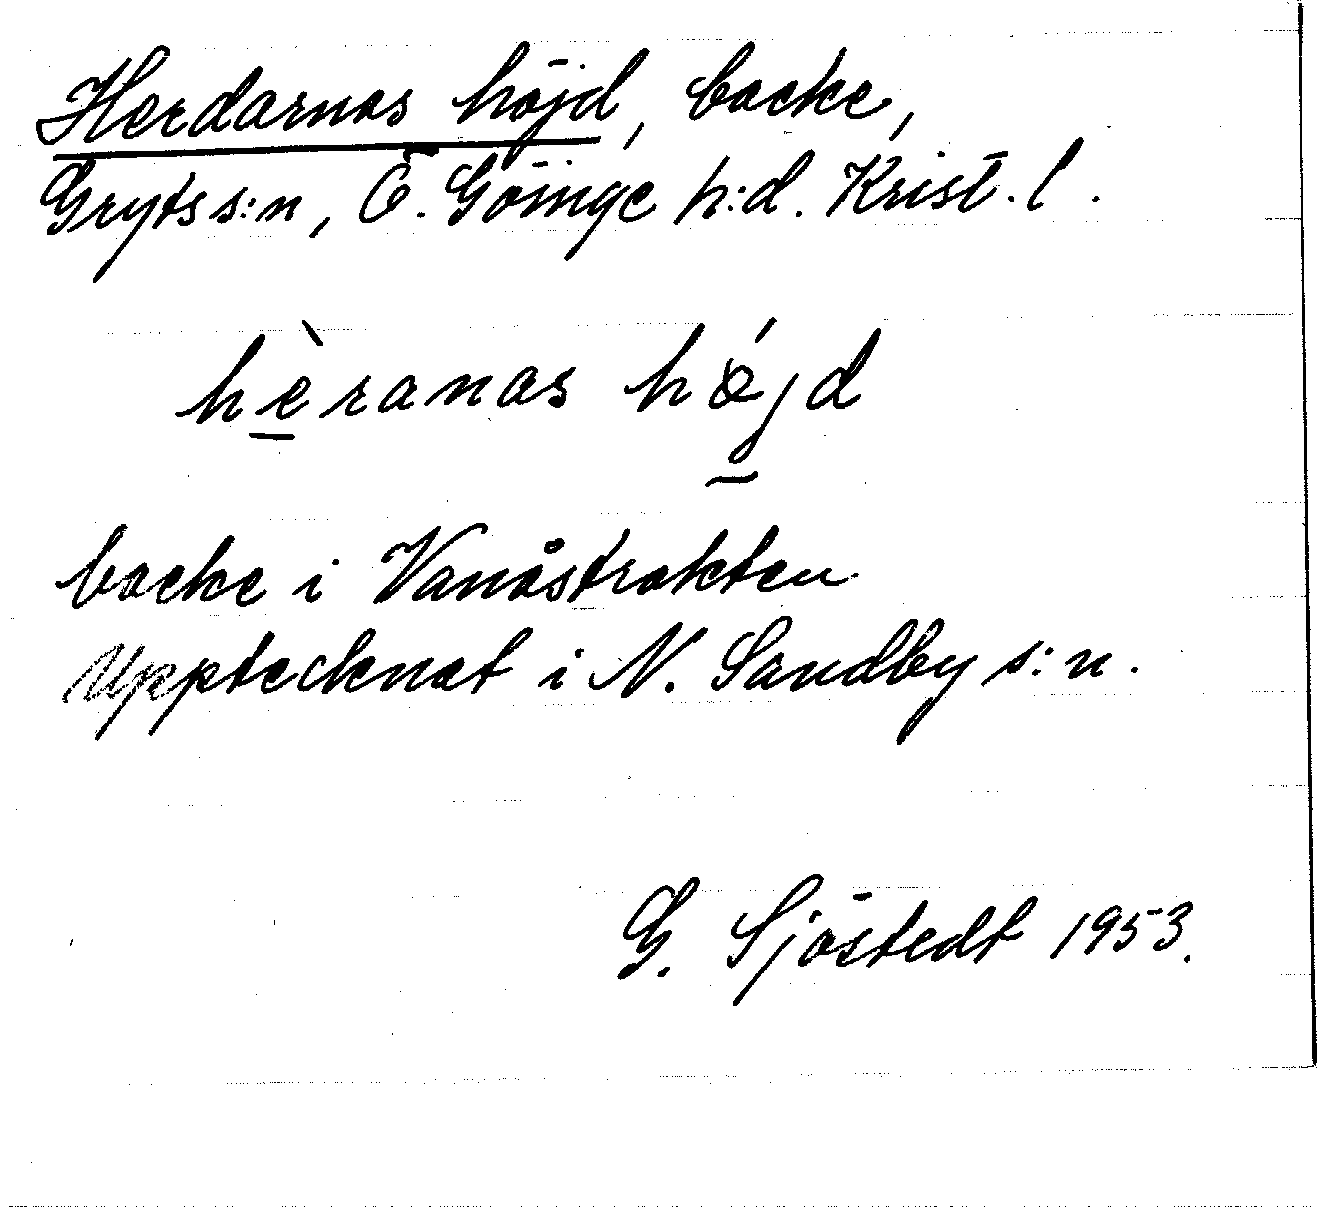 Herdarnas höjd, backe,
Gryts s:n, Ö. Göinge h:d. Krist. l.
hèranas hǿjd
backe i Vanåstrakten
Upptecknat i N. Sandby s:n.
G. Sjöstedt 1953.